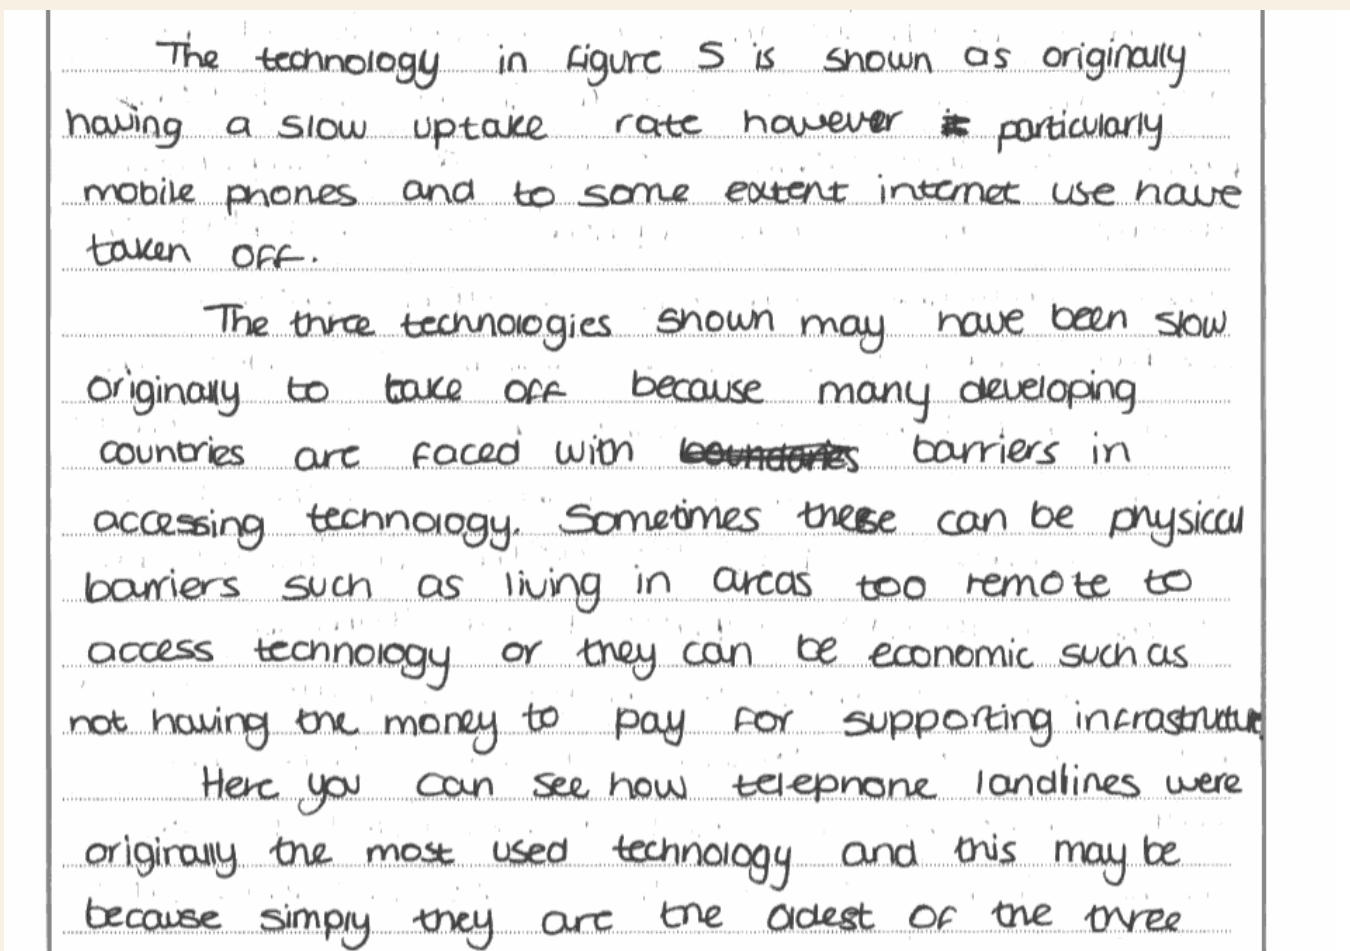 The technology in figure 5 is shown as originally
having a slow uptake rate however particularly
mobile phones and to some extent internet use have
taken off.
The three technologies shown may have been slow
originally to take off because many developing
countries are faced with boundaries barriers in
accessing technology. Sometimes these can be physical
barriers such as living in areas too remote to
access technology or they can be economic such as
not having the money to pay for supporting infrastructure
Here you can see how telephone landlines were
originally the most used technology and this may be
because simply they are the oldest of the three